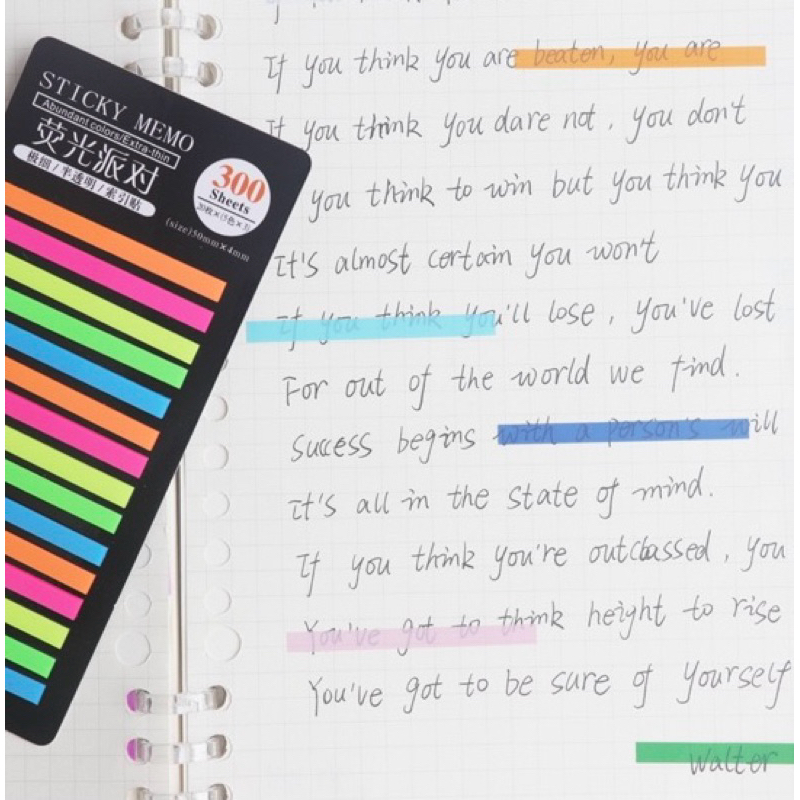 STICKY MEMO
Abundant colors/Extra-thin
荧光派对
极细/半透明/索引贴
300
Sheets
20枚×(5色×3)
(size)50mm×4mm
If you think you are beaten, you are
If you think you dare not, you don't
you think to win but you think you
It's almost certain you won't
If you think you'll lose, you've lost
For out of the world we find.
Success begins with a person's will
It's all in the state of mind.
If you think you're outclassed, you
You've got to think height to rise
You've got to be sure of yourself
Walter